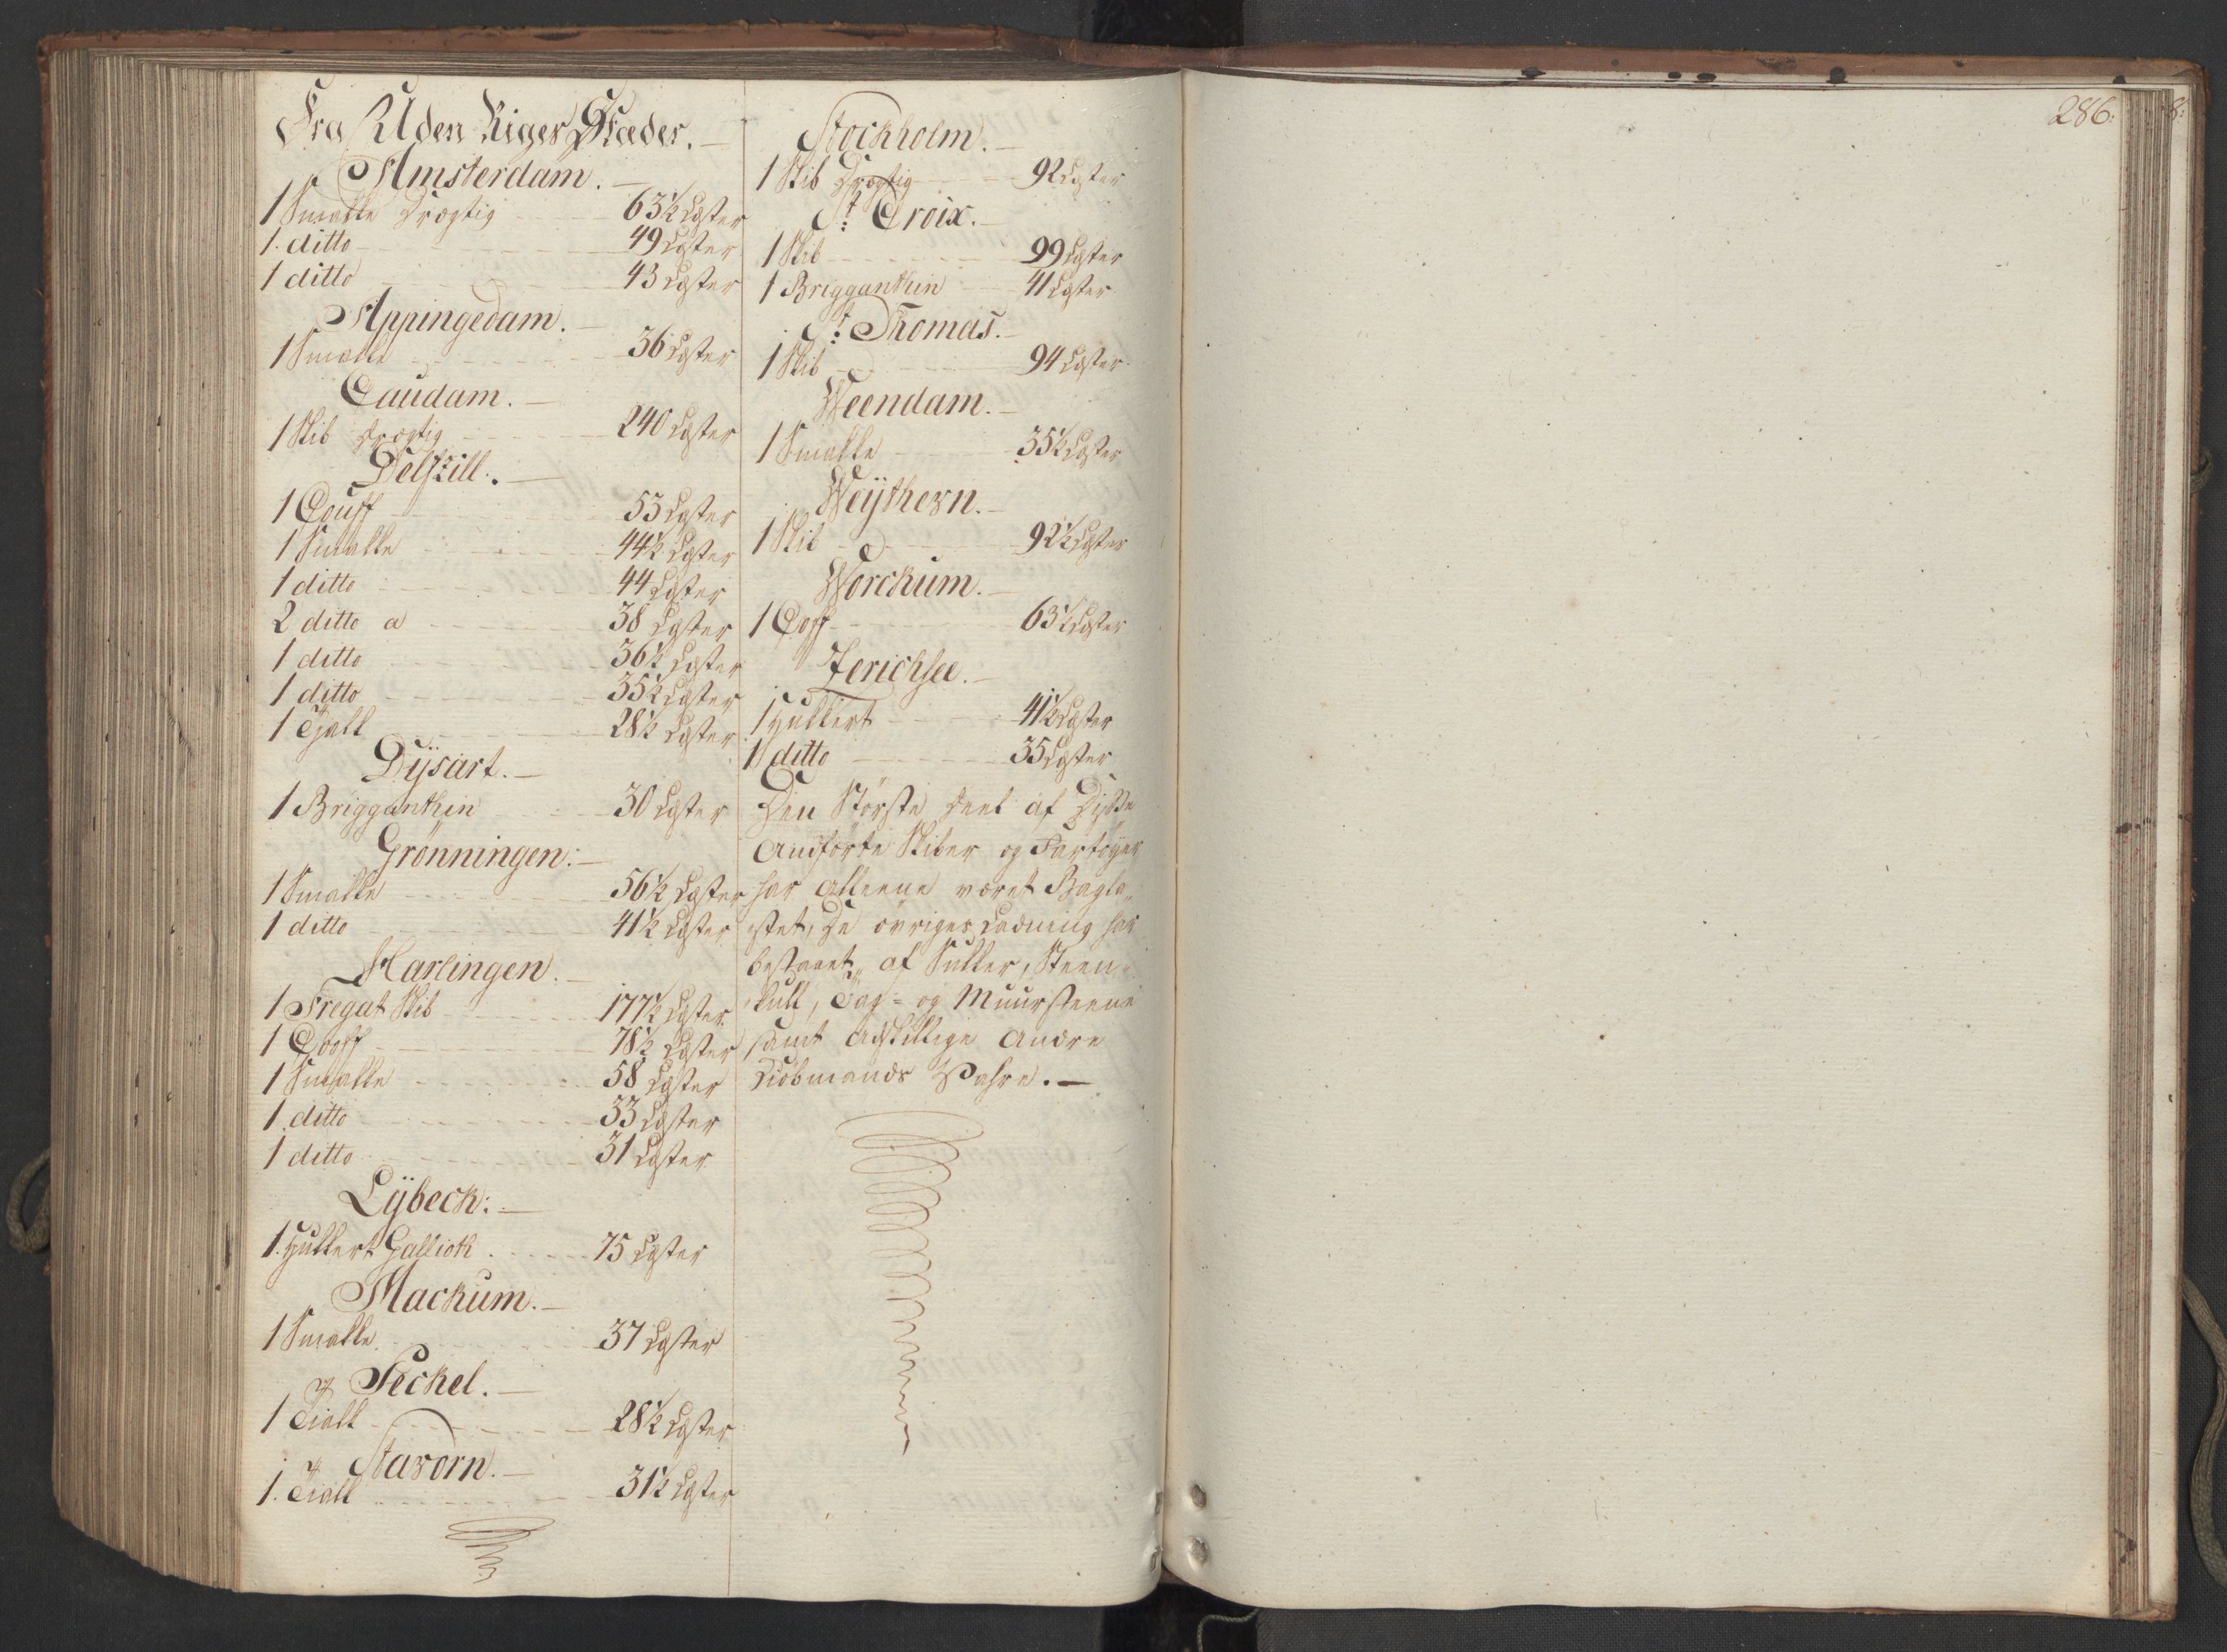 Fra Uden Riges Stæder.
Amsterdam.
1 Smakke Drægtig 63½ Læster
1. ditto 49 Læster
1 ditto 43 Læster
Appingedam.
1 Smakke 36 Læster
Caudam.
1 Skib drægtig 240 Læster
Delfzill.
1 Couff 53 Læster
1 Smakke 44½ Læster
1 ditto 44 Læster
2 ditto a 38 Læster
1 ditto 36½ Læster
1 ditto 35½ Læster
1 Tjalk 28½ Læster
Dÿsart.
1 Brigganthin 30 Læster
Grønningen:
1 Smakke 56½ Læster
1 ditto 41½ Læster
Harlingen.
1 Fregat Skib 177½ Læster
1 Cooff 78½ Læster
1 Smakke 58 Læster
1. ditto 33 Læster
1 ditto 31 Læster
Lÿbeck:
1. Hukkert Gallioth 75 Læster
Mackum.
1 Smakke 37 Læster
Peckel.
1 Tialk 28½ Læster
Stavorn.
1. Tialk 31½ Læster
Stockholm.
1 Skib Drægtig 92 Læster
St: Croix.
1 Skib 99 Læster
1 Brigganthin 41 Læster
St: Thomas.
1 Skib 94 Læster
Weendam.
1 Smakke 35½ Læster
Weÿthern.
1 Skib 92½ Læster
Worckum.
1 Coff 63½ Læster
Zerichsee.
1 Hukkert 41½ Læster
1 ditto 35 Læster
Den Störste Deel af Disse
Anførte Skiber og Fartøyer
har alleene været Bagla„
stet, De øvriges Ladning har
bestaaet„ af Sukker, Steen„
kull, Tag= og Muursteene
samt adskillige Andre
Kiøbmands Wahre.
286.